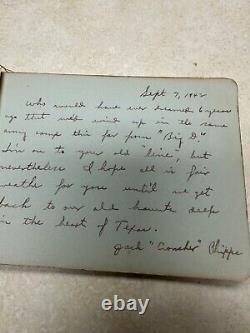 Sept 7, 1942
Who would have ever dreamed 6 years
ago that we'd wind up in the same
army camp this far from "Big D."
I'm on to your old "line", but
nevertheless I hope all is fair
weather for you until we get
back to our old haunts deep
in the heart of Texas.
Jack "Crowsher" Phipps
ebay